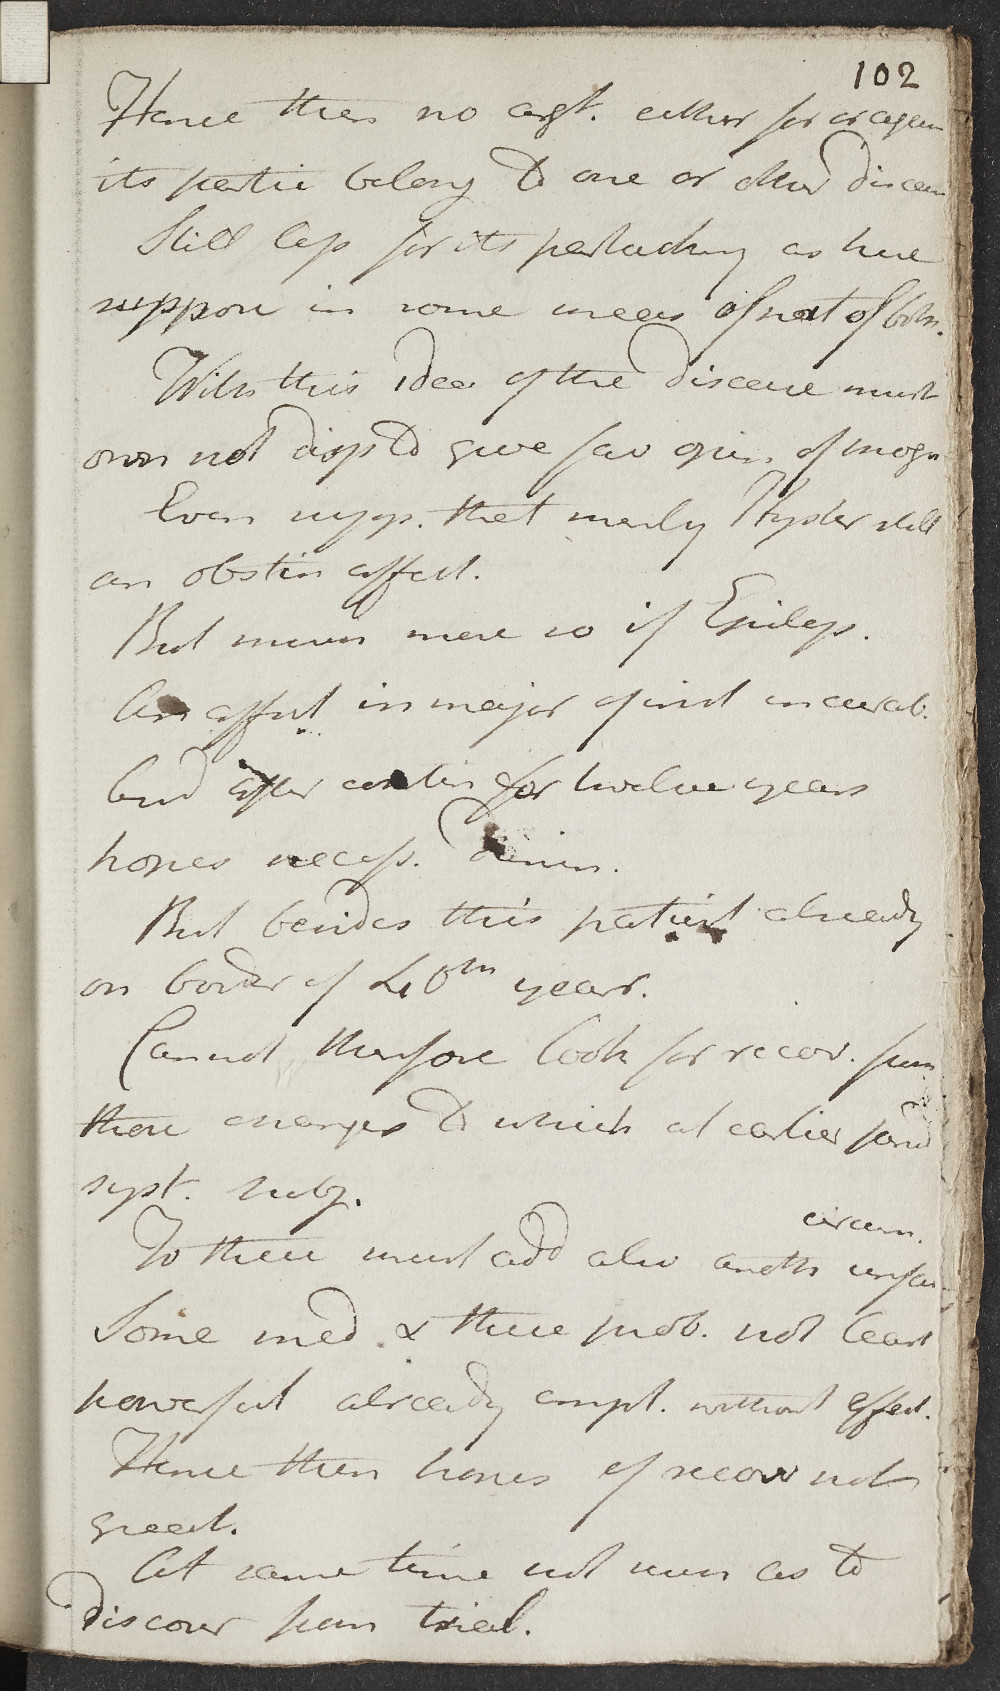 102
Hence then no argt. either for or again
its partic belong to one or other disease
Still less for its partaking as have
suppose in some meas of nat of both.
With this idea of the disease must
own not disp to give fav opin. of progn
Even supp. that merely Hyster still
an obstin affect.
But much more so if Epileps.
An affect in major of inst incurab.
And after contin for twelve years
hopes necess. dimin.
But besides this patient already
on border of 40th year.
Cannot therefore look for recov. from
those changes to which at earlier period
syst. subj.
circum.
To these must add also anoth unfav
Some med. & these prob. not least
powerful already empl. without effect.
Hence then hopes of recov not
great.
At same time not such as to
discover from trial.